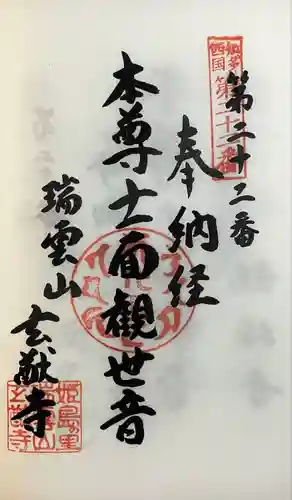 知多
西国
第二十二番
第二十二番
奉納経
本尊十一面觀世音
瑞雲山
玄猷寺
姫島の里
瑞雲山
玄猷寺